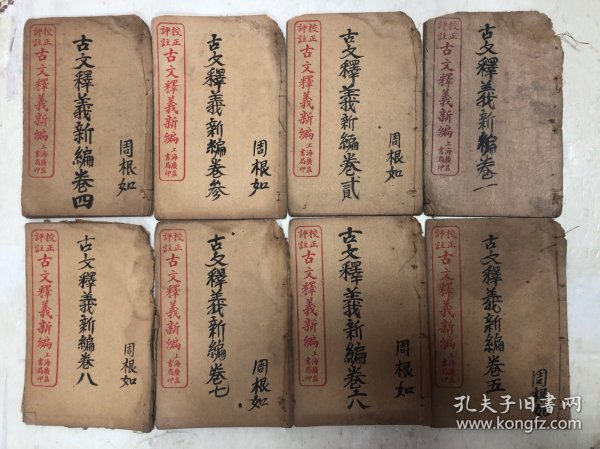 古文釋義新編卷一
校正
評註
古文釋義新編
上海廣益
書局印
周根如
古文釋義新編卷貳
校正
評註
古文釋義新編
上海廣益
書局印
周根如
古文釋義新編卷参
校正
評註
古文釋義新編
上海廣益
書局印
周根如
古文釋義新編卷四
校正
評註
古文釋義新編
上海廣益
書局印
周根如
古文釋義新編卷五
校正
評註
古文釋義新編
上海廣益
書局印
周根如
古文釋義新編卷六
校正
評註
古文釋義新編
上海廣益
書局印
周根如
古文釋義新編卷七
校正
評註
古文釋義新編
上海廣益
書局印
周根如
古文釋義新編卷八
校正
評註
古文釋義新編
上海廣益
書局印
孔夫子旧书网
www.kongfz.com